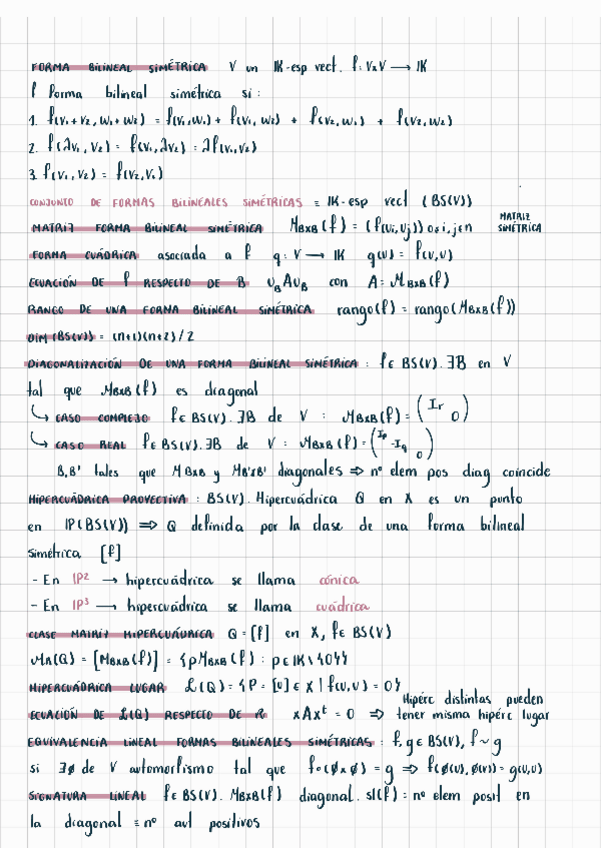 FORMA BILINEAL SIMÉTRICA V un IK-esp vect. f: V×V → IK
f forma bilineal simétrica si:
1. f(v₁+v₂, w₁+w₂) = f(v₁,w₁) + f(v₁,w₂) + f(v₂,w₁) + f(v₂,w₂)
2. f(λv₁,v₂) = f(v₁,λv₂) = λf(v₁,v₂)
3. f(v₁,v₂) = f(v₂,v₁)
CONJUNTO DE FORMAS BILINEALES SIMÉTRICAS ≡ IK-esp vect (BS(V))
MATRIZ FORMA BILINEAL SIMÉTRICA M_B×B(f) = (f(vi,vj)) 0≤i,j≤n MATRIZ SIMÉTRICA
FORMA CUÁDRICA asociada a f q: V → IK q(v) = f(v,v)
ECUACIÓN DE f RESPECTO DE B v_B A v_B con A = M_B×B(f)
RANGO DE UNA FORMA BILINEAL SIMÉTRICA rango(f) = rango(M_B×B(f))
DIM (BS(V)) = (n+1)(n+2)/2
DIAGONALIZACIÓN DE UNA FORMA BILINEAL SIMÉTRICA : f ∈ BS(V). ∃B en V
tal que M_B×B(f) es diagonal
↳ CASO COMPLEJO f ∈ BS(V). ∃B de V : M_B×B(f) = (Ir 0)
↳ CASO REAL f ∈ BS(V). ∃B de V : M_B×B(f) = (Ip -Iq 0)
B,B' tales que M_B×B y M_B'×B' diagonales ⇒ nº elem pos diag coincide
HIPERCUÁDRICA PROYECTIVA : BS(V). Hipercuádrica Q en X es un punto
en IP(BS(V)) ⇒ Q definida por la clase de una forma bilineal
simétrica [f]
- En IP² → hipercuádrica se llama cónica
- En IP³ → hipercuádrica se llama cuádrica
CLASE MATRIZ HIPERCUÁDRICA Q = [f] en X, f ∈ BS(V)
M_R(Q) = [M_B×B(f)] = {ρM_B×B(f) : ρ ∈ IK\{0}}
HIPERCUÁDRICA LUGAR L(Q) = {P = [v] ∈ X | f(v,v) = 0}
ECUACIÓN DE L(Q) RESPECTO DE R xAxᵗ = 0 ⇒ Hipérc distintas pueden tener misma hipérc lugar
EQUIVALENCIA LINEAL FORMAS BILINEALES SIMÉTRICAS : f,g ∈ BS(V), f ~ g
si ∃ø de V automorfismo tal que f∘(ø×ø) = g ⇒ f(ø(u),ø(v)) = g(u,v)
SIGNATURA LINEAL f ∈ BS(V). M_B×B(f) diagonal. sl(f) = nº elem posit en
la diagonal ≡ nº aut positivos